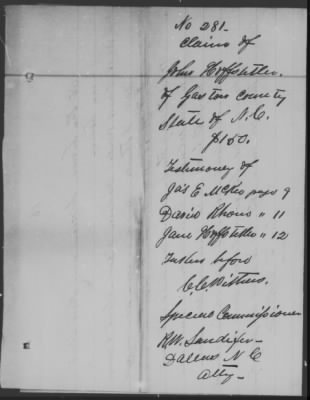 No 281-
Claim of
John Hoffstetler.
of Gaston County
State of N.C.
$150.
Testimony of
Jas E McKee page 9
David Rhone " 11
Jane Hoffstetler " 12
Taken before
C.C. Withers.
Special Commissioner
R.W. Sandifer-
Dallas N C
Atty-